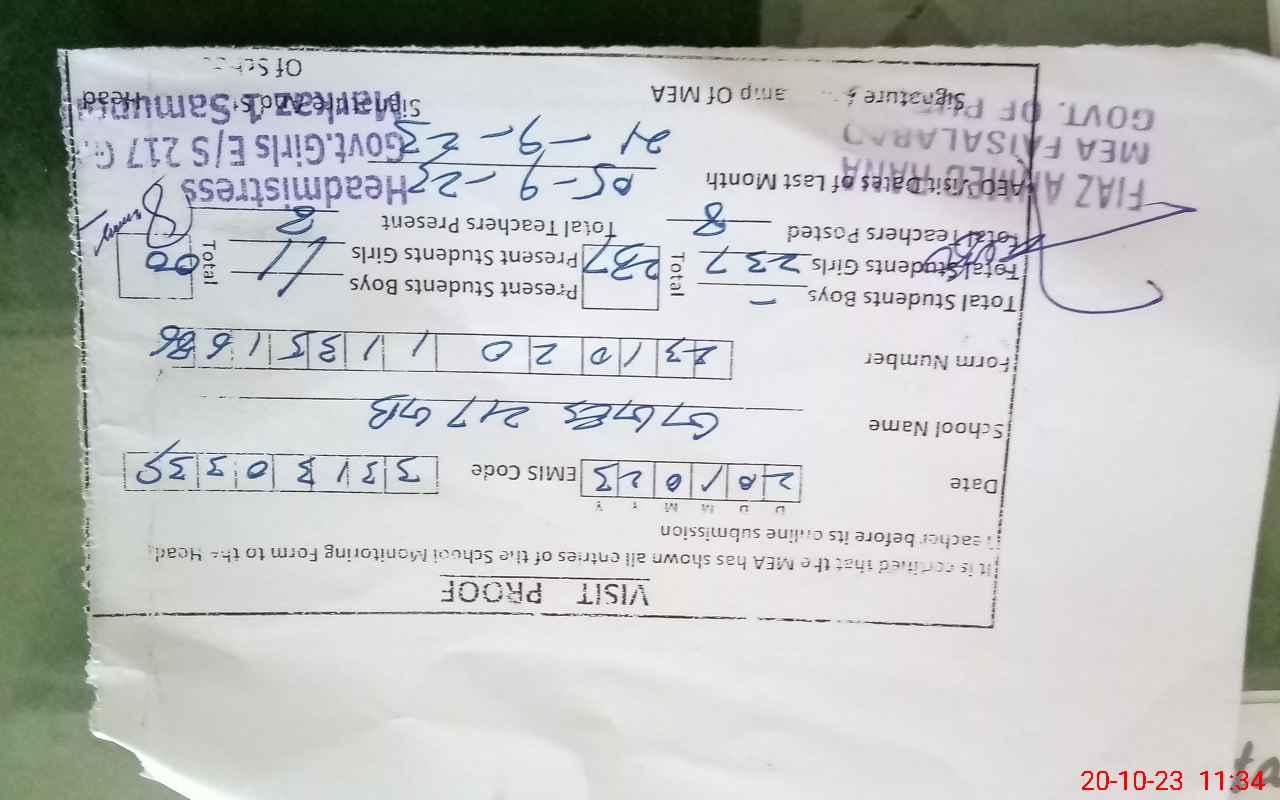 VISIT PROOF
It is certified that the MEA has shown all entries of the School Monitoring Form to the Head
Teacher before its online submission
D D M M Y Y
Date 20 10 23 EMIS Code 3 3 1 3 0 3 3 5
School Name GGES 217 GB
Form Number 23 1 0 2 0 1 1 1 35 1
Total Students Boys - Total 237 Present Students Boys Total 00
Total Students Girls 237 Present Students Girls
Total Teachers Posted 8 Total Teachers Present 8
AEO Visit Dates of Last Month 05-9-23
21-9-23
Headmistress
Govt.Girls E/S 217 G
Markaz Samun
FIAZ AHMED RANA
MEA FAISALABAD
GOVT. OF
Signature & Stamp Of MEA Head
Of School
20-10-23 11:34